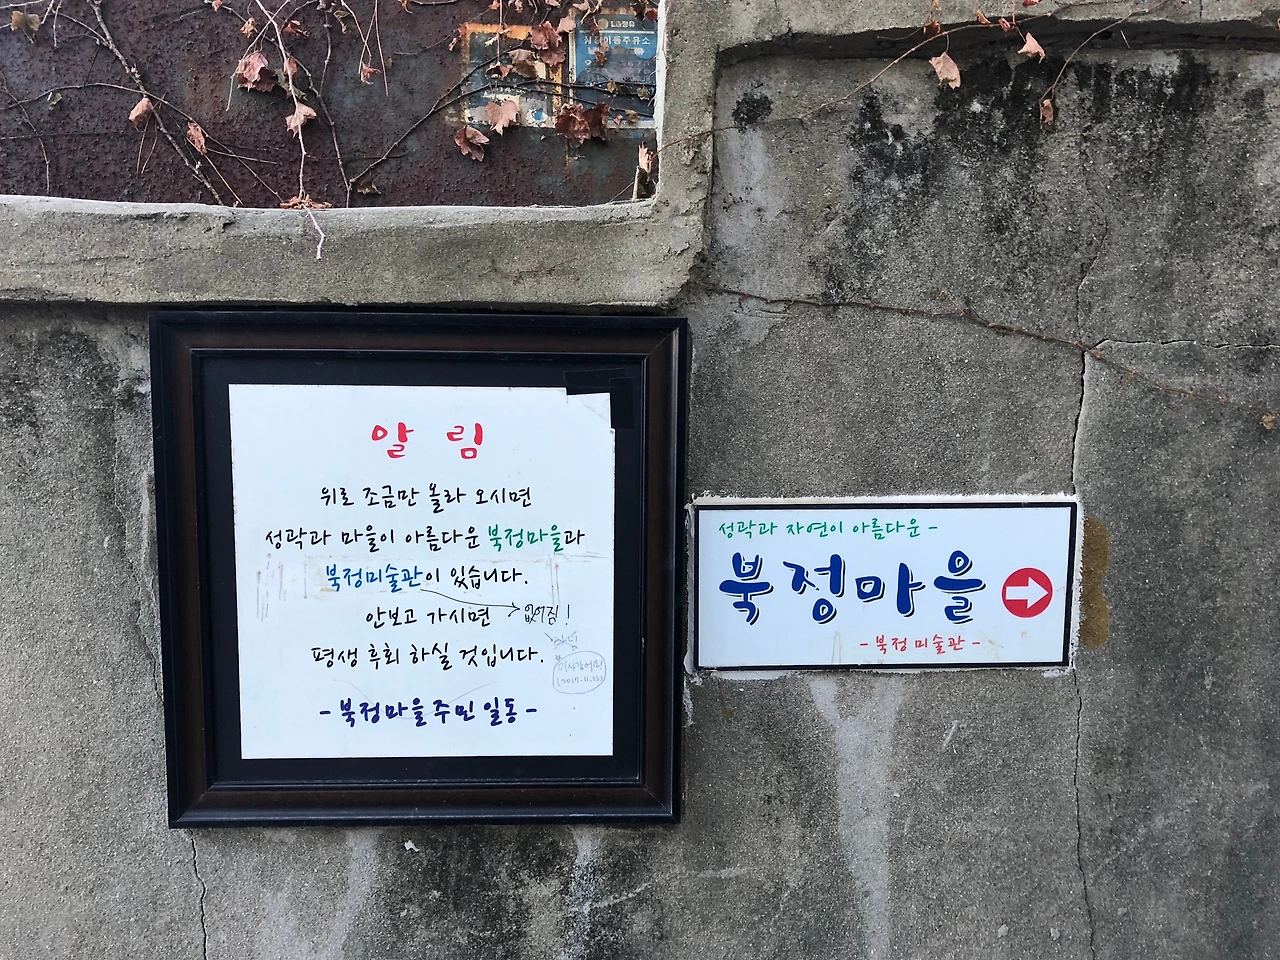 LG정유
알 림
위로 조금만 올라 오시면
성곽과 마을이 아름다운 북정마을과
북정미술관이 있습니다.
안보고 가시면 없어짐!
평생 후회 하실 것입니다.
- 북정마을 주민 일동 -
이사갔어요
(2017.11.13)
성곽과 자연이 아름다운 -
북정마을
- 북정미술관 -